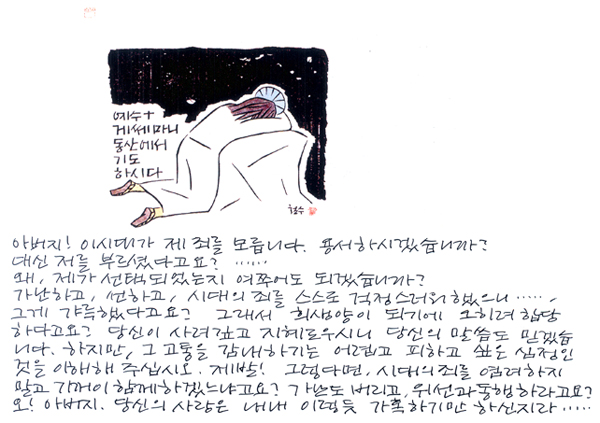 예수+
게쎄마니
동산에서
기도
하시다
철수
아버지! 이시대가 제 죄를 모릅니다. 용서하시겠습니까?
대신 저를 부르셨다고요? ......
왜, 제가 선택되었는지 여쭈어도 되겠습니까?
가난하고, 선하고, 시대의 죄를 스스로 걱정스러워했으니 .....,
그게 갸륵했다고요? 그래서 희생양이 되기에 오히려 합당
하다고요? 당신이 사려깊고 지혜로우시니 당신의 말씀도 믿겠습
니다. 하지만, 그 고통을 감내하기는 어렵고 피하고 싶은 심정인
것을 이해해 주십시오. 제발! 그렇다면, 시대의 죄를 염려하지
말고 기꺼이 함께하겠느냐고요? 가난도 버리고, 위선과 동행하라고요?
오! 아버지. 당신의 사랑은 내내 이렇듯 가혹하기만 하신지라 .....